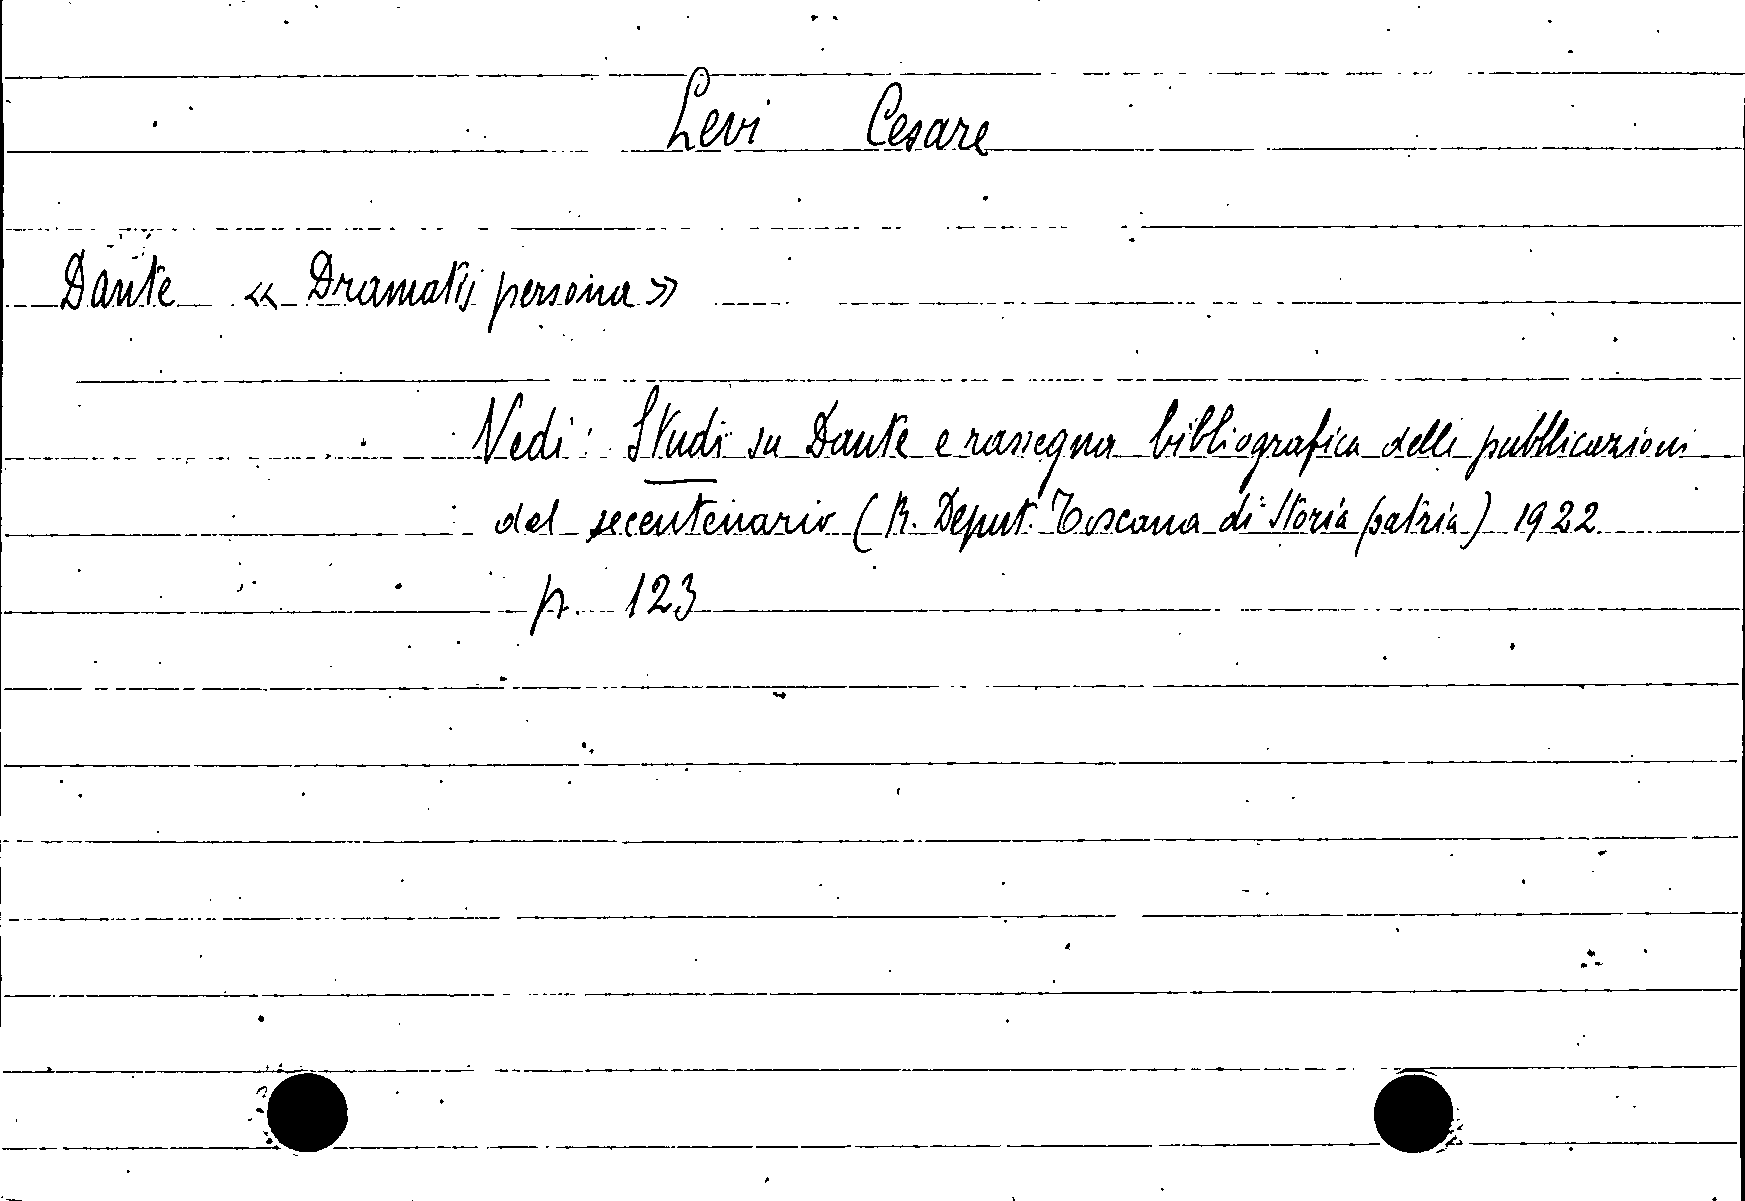 Levi Cesare
Dante « Dramatis persona »
Vedi: Studi su Dante e rassegna bibliografica delle pubblicazioni
del secentenario (R. Deput. Toscana di Storia patria) 1922
p. 123